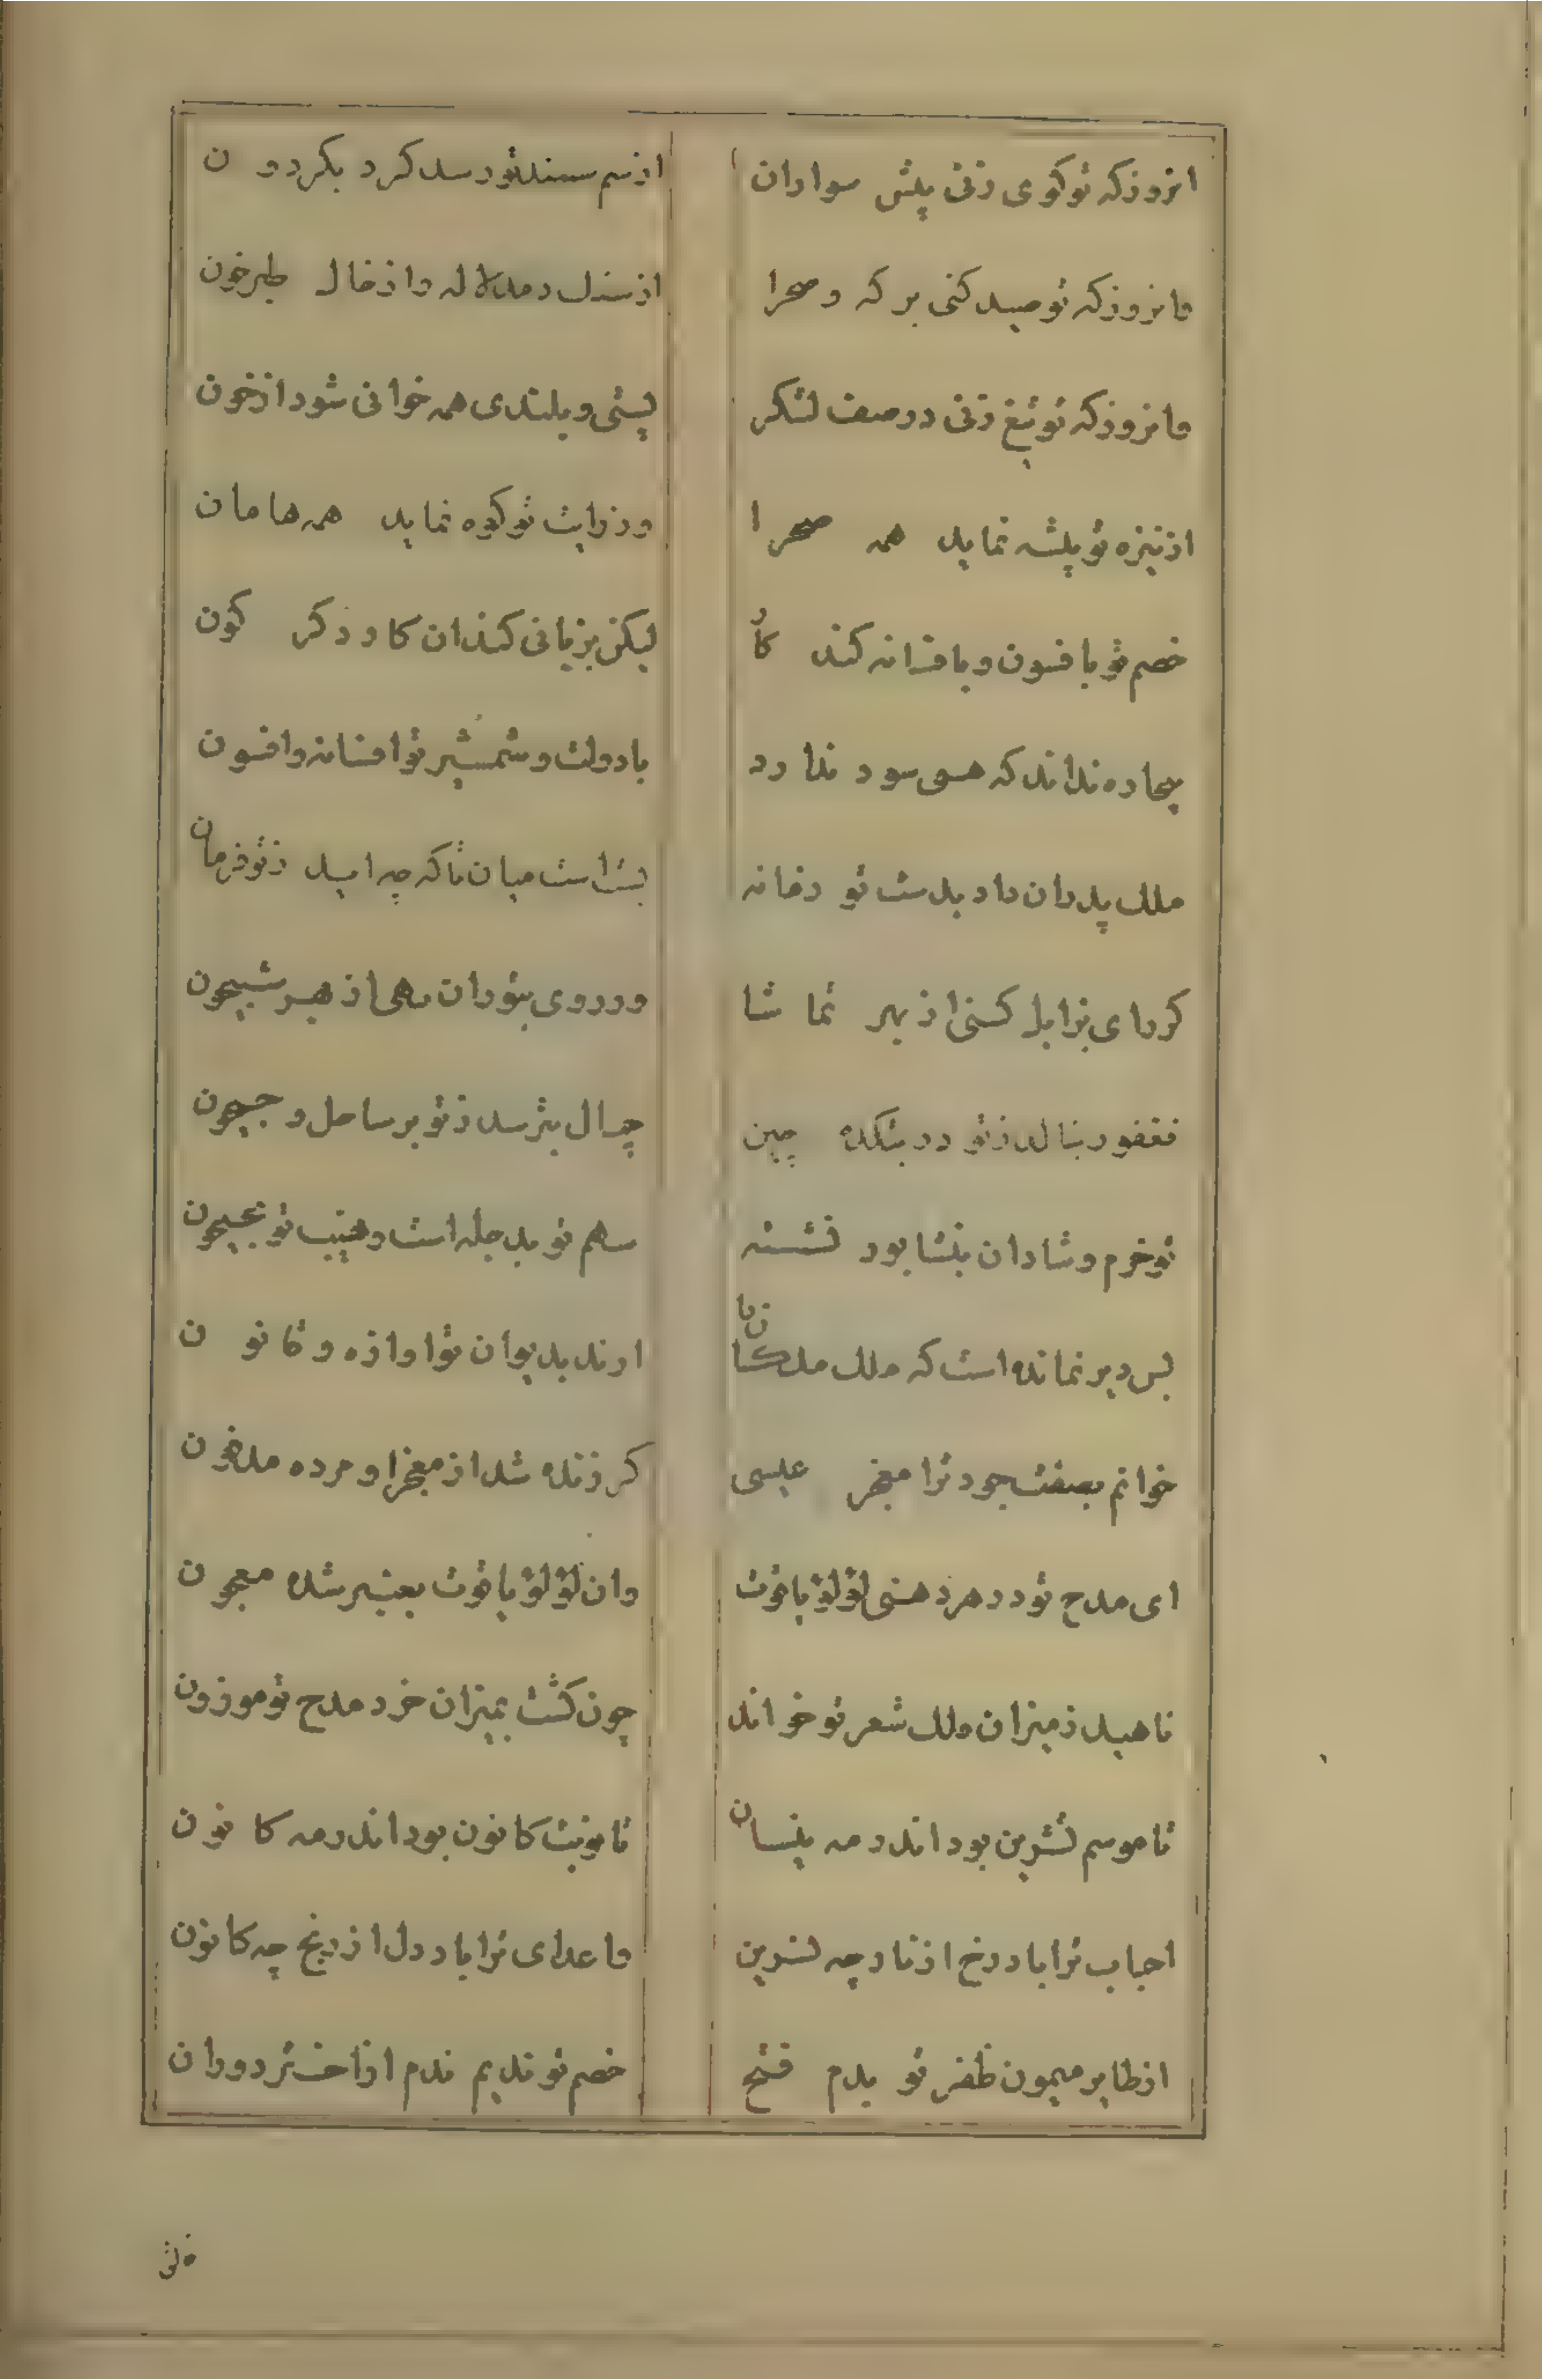 انروز که تو کوی زنی پیش سواران
از سم سمند تو رسد کرد بکردون
وانروز که تو صید کنی بر که و صحرا
از سنک دمد لاله و از خاک طبرخون
وانروز که تو تیغ زنی در صف لشکر
پستی و بلندی همه خوانی شود از خون
از نیزه تو بیشه نماید همه صحرا
وز رایت تو کوه نماید همه هامان
خصم تو بافسون و بافسانه کند کار
لیکن بزیانی کند ان کار دکر کون
بیچاره نداند که همی سود ندارد
با دولت و شمشیر تو افسانه و افسون
ملک پدران داد بدست تو زمانه
بست است میان تا که چه اید ز تو فرمان
کر رای بزابل کنی از بهر تماشا
ور روی بتوران نهی از بهر شبیخون
فغفور بنالد ز تو در بتکده چین
چیپال بترسد ز تو بر ساحل و جیحون
تو خرم و شادان بنشابور نشسته
سهم تو بدجله است و نهیب تو بجیحون
بس دیر نمانده است که ملک ملکان را
ارند بدیوان تو اوازه و قانون
خوانم بصفت جود ترا معجز عیسی
کز زنده شد از معجز او مرده مدفون
ای مدح تو در هر دهنی لؤلؤ یاقوت
وان لؤلؤ یاقوت بعنبر شده معجون
ناهید ز میزان فلک شعر تو خواند
چون کشت بمیزان خرد مدح تو موزون
تا موسم تشرین بود اندر مه نیسان
تا نوبت کانون بود اندر مه کانون
احباب ترا باد رخ از ناز چه نسرین
واعدای ترا باد دل از رنج چه کانون
از طایر میمون ظفر تو بدم فتح
خصم تو ندیم ندم از اخت دوران